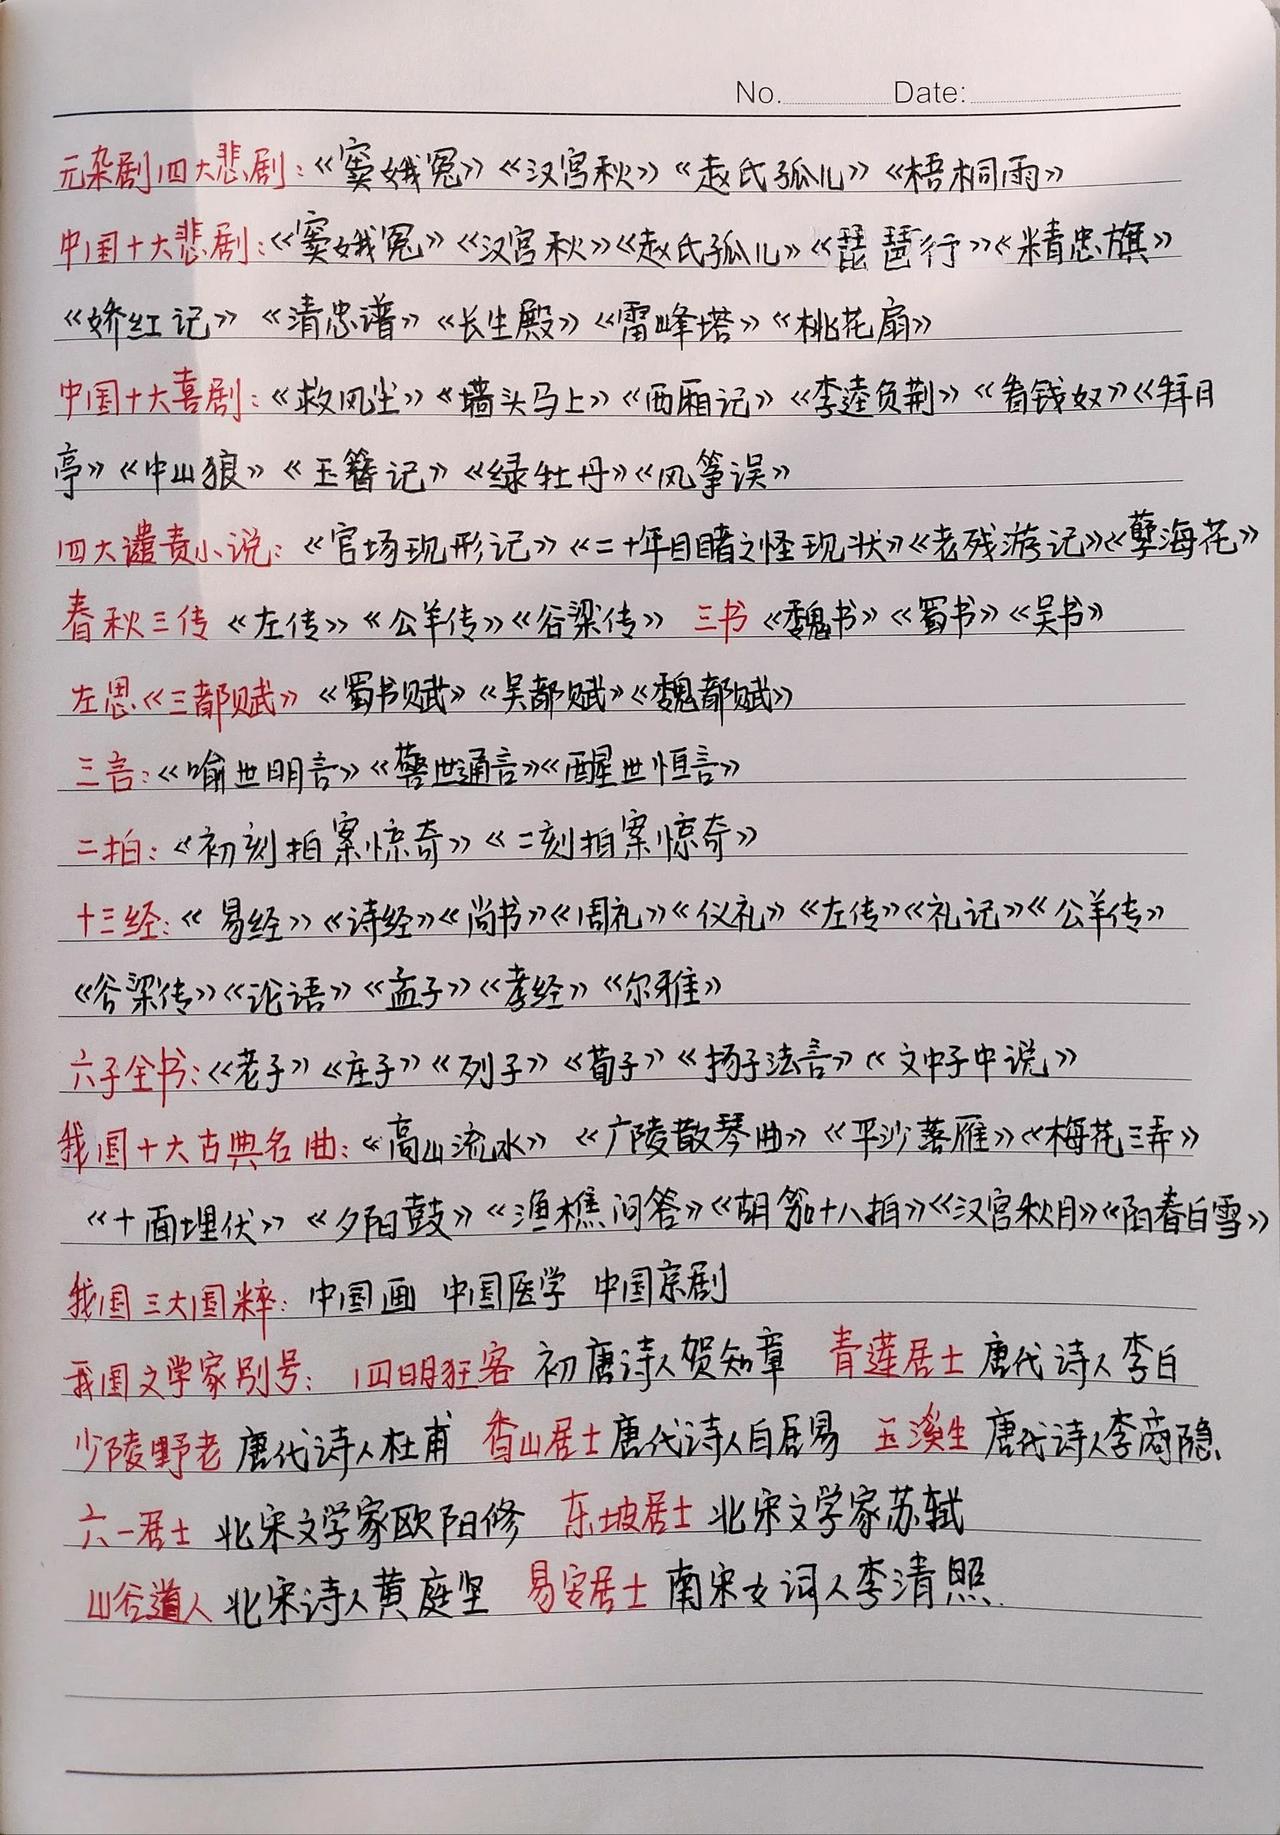 No. Date:
元杂剧四大悲剧:《窦娥冤》《汉宫秋》《赵氏孤儿》《梧桐雨》
中国十大悲剧:《窦娥冤》《汉宫秋》《赵氏孤儿》《琵琶行》《精忠旗》
《娇红记》《清忠谱》《长生殿》《雷峰塔》《桃花扇》
中国十大喜剧:《救风尘》《墙头马上》《西厢记》《李逵负荆》《看钱奴》《拜月
亭》《中山狼》《玉簪记》《绿牡丹》《风筝误》
四大谴责小说:《官场现形记》《二十年目睹之怪现状》《老残游记》《孽海花》
春秋三传《左传》《公羊传》《谷梁传》 三书《魏书》《蜀书》《吴书》
左思《三都赋》《蜀书赋》《吴都赋》《魏都赋》
三言:《喻世明言》《警世通言》《醒世恒言》
二拍:《初刻拍案惊奇》《二刻拍案惊奇》
十三经:《易经》《诗经》《尚书》《周礼》《仪礼》《左传》《礼记》《公羊传》
《谷梁传》《论语》《孟子》《孝经》《尔雅》
六子全书:《老子》《庄子》《列子》《荀子》《扬子法言》《文中子中说》
我国十大古典名曲:《高山流水》《广陵散琴曲》《平沙落雁》《梅花三弄》
《十面埋伏》《夕阳鼓》《渔樵问答》《胡笳十八拍》《汉宫秋月》《阳春白雪》
我国三大国粹: 中国画 中国医学 中国京剧
我国文学家别号: 四明狂客 初唐诗人贺知章 青莲居士 唐代诗人李白
少陵野老 唐代诗人杜甫 香山居士 唐代诗人白居易 玉溪生 唐代诗人李商隐、
六一居士 北宋文学家欧阳修 东坡居士 北宋文学家苏轼
山谷道人 北宋诗人黄庭坚 易安居士 南宋女词人李清照.